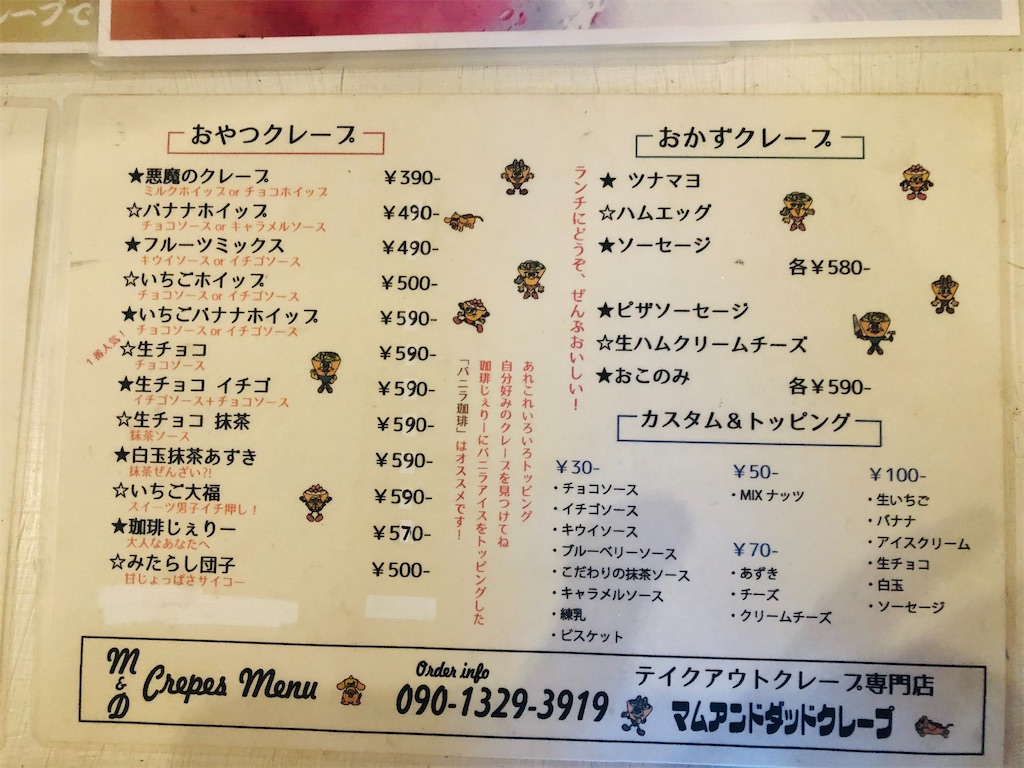 ープで
おやつクレープ
★悪魔のクレープ ￥390-
ミルクホイップ or チョコホイップ
☆バナナホイップ ￥490-
チョコソース or キャラメルソース
★フルーツミックス ￥490-
キウイソース or イチゴソース
☆いちごホイップ ￥500-
チョコソース or イチゴソース
★いちごバナナホイップ ￥590-
チョコソース or イチゴソース
1番人気！
☆生チョコ ￥590-
チョコソース
★生チョコ イチゴ ￥590-
イチゴソース＋チョコソース
☆生チョコ 抹茶 ￥590-
抹茶ソース
★白玉抹茶あずき ￥590-
抹茶ぜんざい?!
☆いちご大福 ￥590-
スイーツ男子イチ押し！
★珈琲じぇりー ￥570-
大人なあなたへ
☆みたらし団子 ￥500-
甘じょっぱさサイコー
あれこれいろいろトッピング
自分好みのクレープを見つけてね
珈琲じぇりーにバニラアイスをトッピングした
「バニラ珈琲」はオススメです！
おかずクレープ
ランチにどうぞ、ぜんぶおいしい！
★ ツナマヨ
☆ハムエッグ
★ソーセージ
各￥580-
★ピザソーセージ
☆生ハムクリームチーズ
★おこのみ
各￥590-
カスタム＆トッピング
￥30-
・チョコソース
・イチゴソース
・キウイソース
・ブルーベリーソース
・こだわりの抹茶ソース
・キャラメルソース
・練乳
・ビスケット
￥50-
・MIXナッツ
￥70-
・あずき
・チーズ
・クリームチーズ
￥100-
・生いちご
・バナナ
・アイスクリーム
・生チョコ
・白玉
・ソーセージ
M&D Crepes Menu
Order info
090-1329-3919
テイクアウトクレープ専門店
マムアンドダッドクレープ